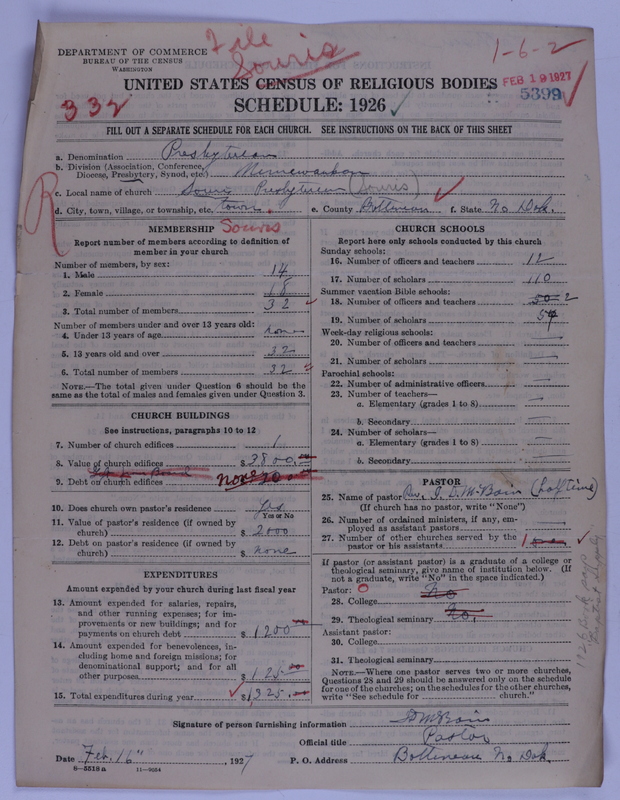 File
Souris
1-6-2
DEPARTMENT OF COMMERCE
BUREAU OF THE CENSUS
WASHINGTON
FEB 19 1927
5399
UNITED STATES CENSUS OF RELIGIOUS BODIES
332
SCHEDULE: 1926
FILL OUT A SEPARATE SCHEDULE FOR EACH CHURCH. SEE INSTRUCTIONS ON THE BACK OF THIS SHEET
a. Denomination Presbyterian
b. Division (Association, Conference, Diocese, Presbytery, Synod, etc.) Minnewaukan
c. Local name of church Souris Presbyterian (Souris)
d. City, town, village, or township, etc. town. e. County Bottineau f. State No Dak.
R
MEMBERSHIP Souris
Report number of members according to definition of
member in your church
Number of members, by sex:
1. Male 14
2. Female 18
3. Total number of members 32
Number of members under and over 13 years old:
4. Under 13 years of age none
5. 13 years old and over 32
6. Total number of members 32
NOTE.—The total given under Question 6 should be the
same as the total of males and females given under Question 3.
CHURCH BUILDINGS
See instructions, paragraphs 10 to 12
7. Number of church edifices 1
8. Value of church edifices $ 3800.
9. Debt on church edifices
10. Does church own pastor's residence Yes
Yes or No
11. Value of pastor's residence (if owned by
church) $ 2000
12. Debt on pastor's residence (if owned by
church) $ none
EXPENDITURES
Amount expended by your church during last fiscal year
13. Amount expended for salaries, repairs,
and other running expenses; for im-
provements or new buildings; and for
payments on church debt $ 1200
14. Amount expended for benevolences, in-
cluding home and foreign missions; for
denominational support; and for all
other purposes $ 125
15. Total expenditures during year $ 1325.
CHURCH SCHOOLS
Report here only schools conducted by this church
Sunday schools:
16. Number of officers and teachers 12
17. Number of scholars 110
Summer vacation Bible schools:
18. Number of officers and teachers 50 2
19. Number of scholars
Week-day religious schools:
20. Number of officers and teachers —
21. Number of scholars —
Parochial schools:
22. Number of administrative officers —
23. Number of teachers—
a. Elementary (grades 1 to 8) —
b. Secondary —
24. Number of scholars—
a. Elementary (grades 1 to 8) —
b. Secondary —
PASTOR
25. Name of pastor Rev. I. D. McBain (half time)
(If church has no pastor, write "None")
26. Number of ordained ministers, if any, em-
ployed as assistant pastors
27. Number of other churches served by the
pastor or his assistants 1 one
If pastor (or assistant pastor) is a graduate of a college or
theological seminary, give name of institution below. (If
not a graduate, write "No" in the space indicated.)
Pastor: 0
28. College No
29. Theological seminary No.
Assistant pastor:
30. College
31. Theological seminary
NOTE.—Where one pastor serves two or more churches,
Questions 28 and 29 should be answered only on the schedule
for one of the churches; on the schedules for the other churches,
write "See schedule for church."
Signature of person furnishing information I D McBain
Official title Pastor
Date Feb. 16", 1927 P. O. Address Bottineau No Dak.
6—5518a 11—9054